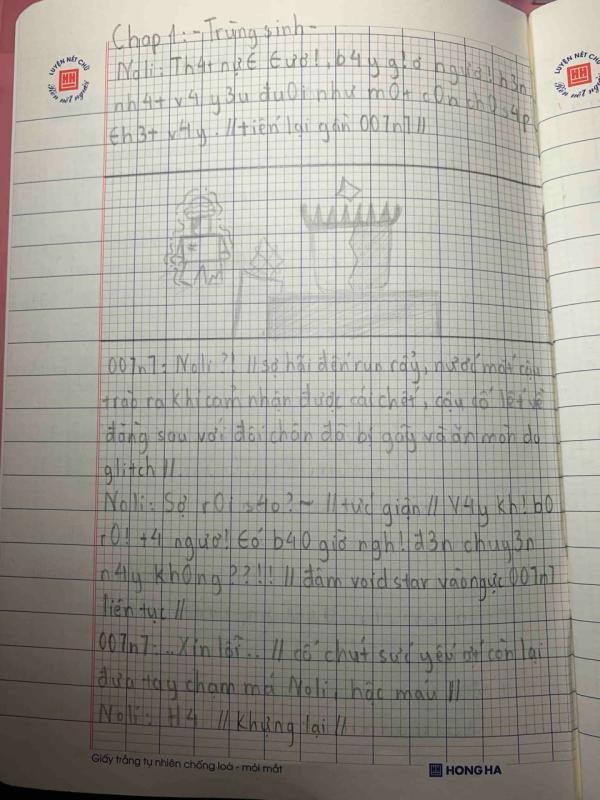 Chap 1: - Trùng sinh -
LUYỆN NÉT CHỮ
HH
Rèn nết người
LUYỆN NÉT CHỮ
HH
Rèn nết người
Noli: Th4t nự€ €ườ!, b4y giờ ngươ! h3n
nh4t v4y y3u đu0i như m0t c0n chu s4p
€h3t v4y. //tiến lại gần 007n7//
007n7: Noli?! //sợ hãi đến run rẩy, nước mắt cậu
trào ra khi cảm nhận được cái chết, cậu cố lết về
đằng sau với đôi chân đã bị gãy và ăn mòn do
glitch//.
Noli: Sợ r0i s4o?~ //tức giận// V4y kh! b0
r0! t4 ngươ! €ó b40 giờ ngh! đ3n chuy3n
n4y kh0ng??!! //đâm voidstar vào ngực 007n7
liên tục//
007n7: ..Xin lỗi.. //cố chút sức yếu ớt còn lại
đưa tay chạm má Noli, hộc máu//
Noli: H4 //Khựng lại//
Giấy trắng tự nhiên chống loá - mỏi mắt
HH HONG HA